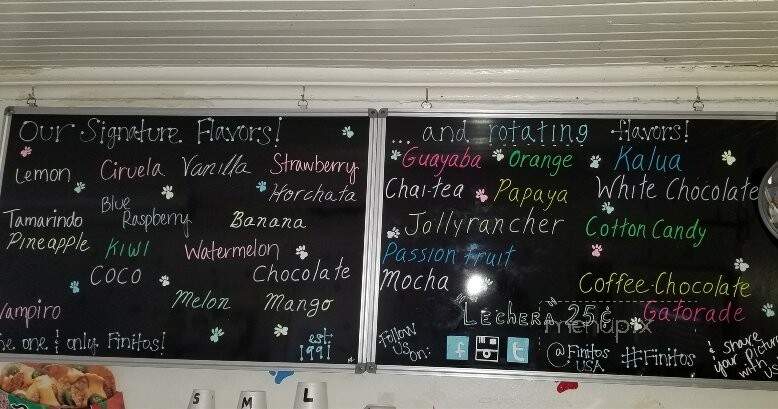 Our Signature Flavors!
Lemon Ciruela Vanilla Strawberry
Horchata
Tamarindo Blue Raspberry Banana
Pineapple KIWI Watermelon
COCO Chocolate
Vampiro Melon Mango
one & only Finitos!
est. 1991
... and rotating flavors!
Guayaba Orange Kalua
Chai-tea Papaya White Chocolate
Jollyrancher Cotton Candy
Passion fruit
Mocha Coffee-Chocolate
"LECHERA" 25¢ Gatorade
menupix
Follow us on: f t @Finitos USA #Finitos & share your Picture with us
S M L